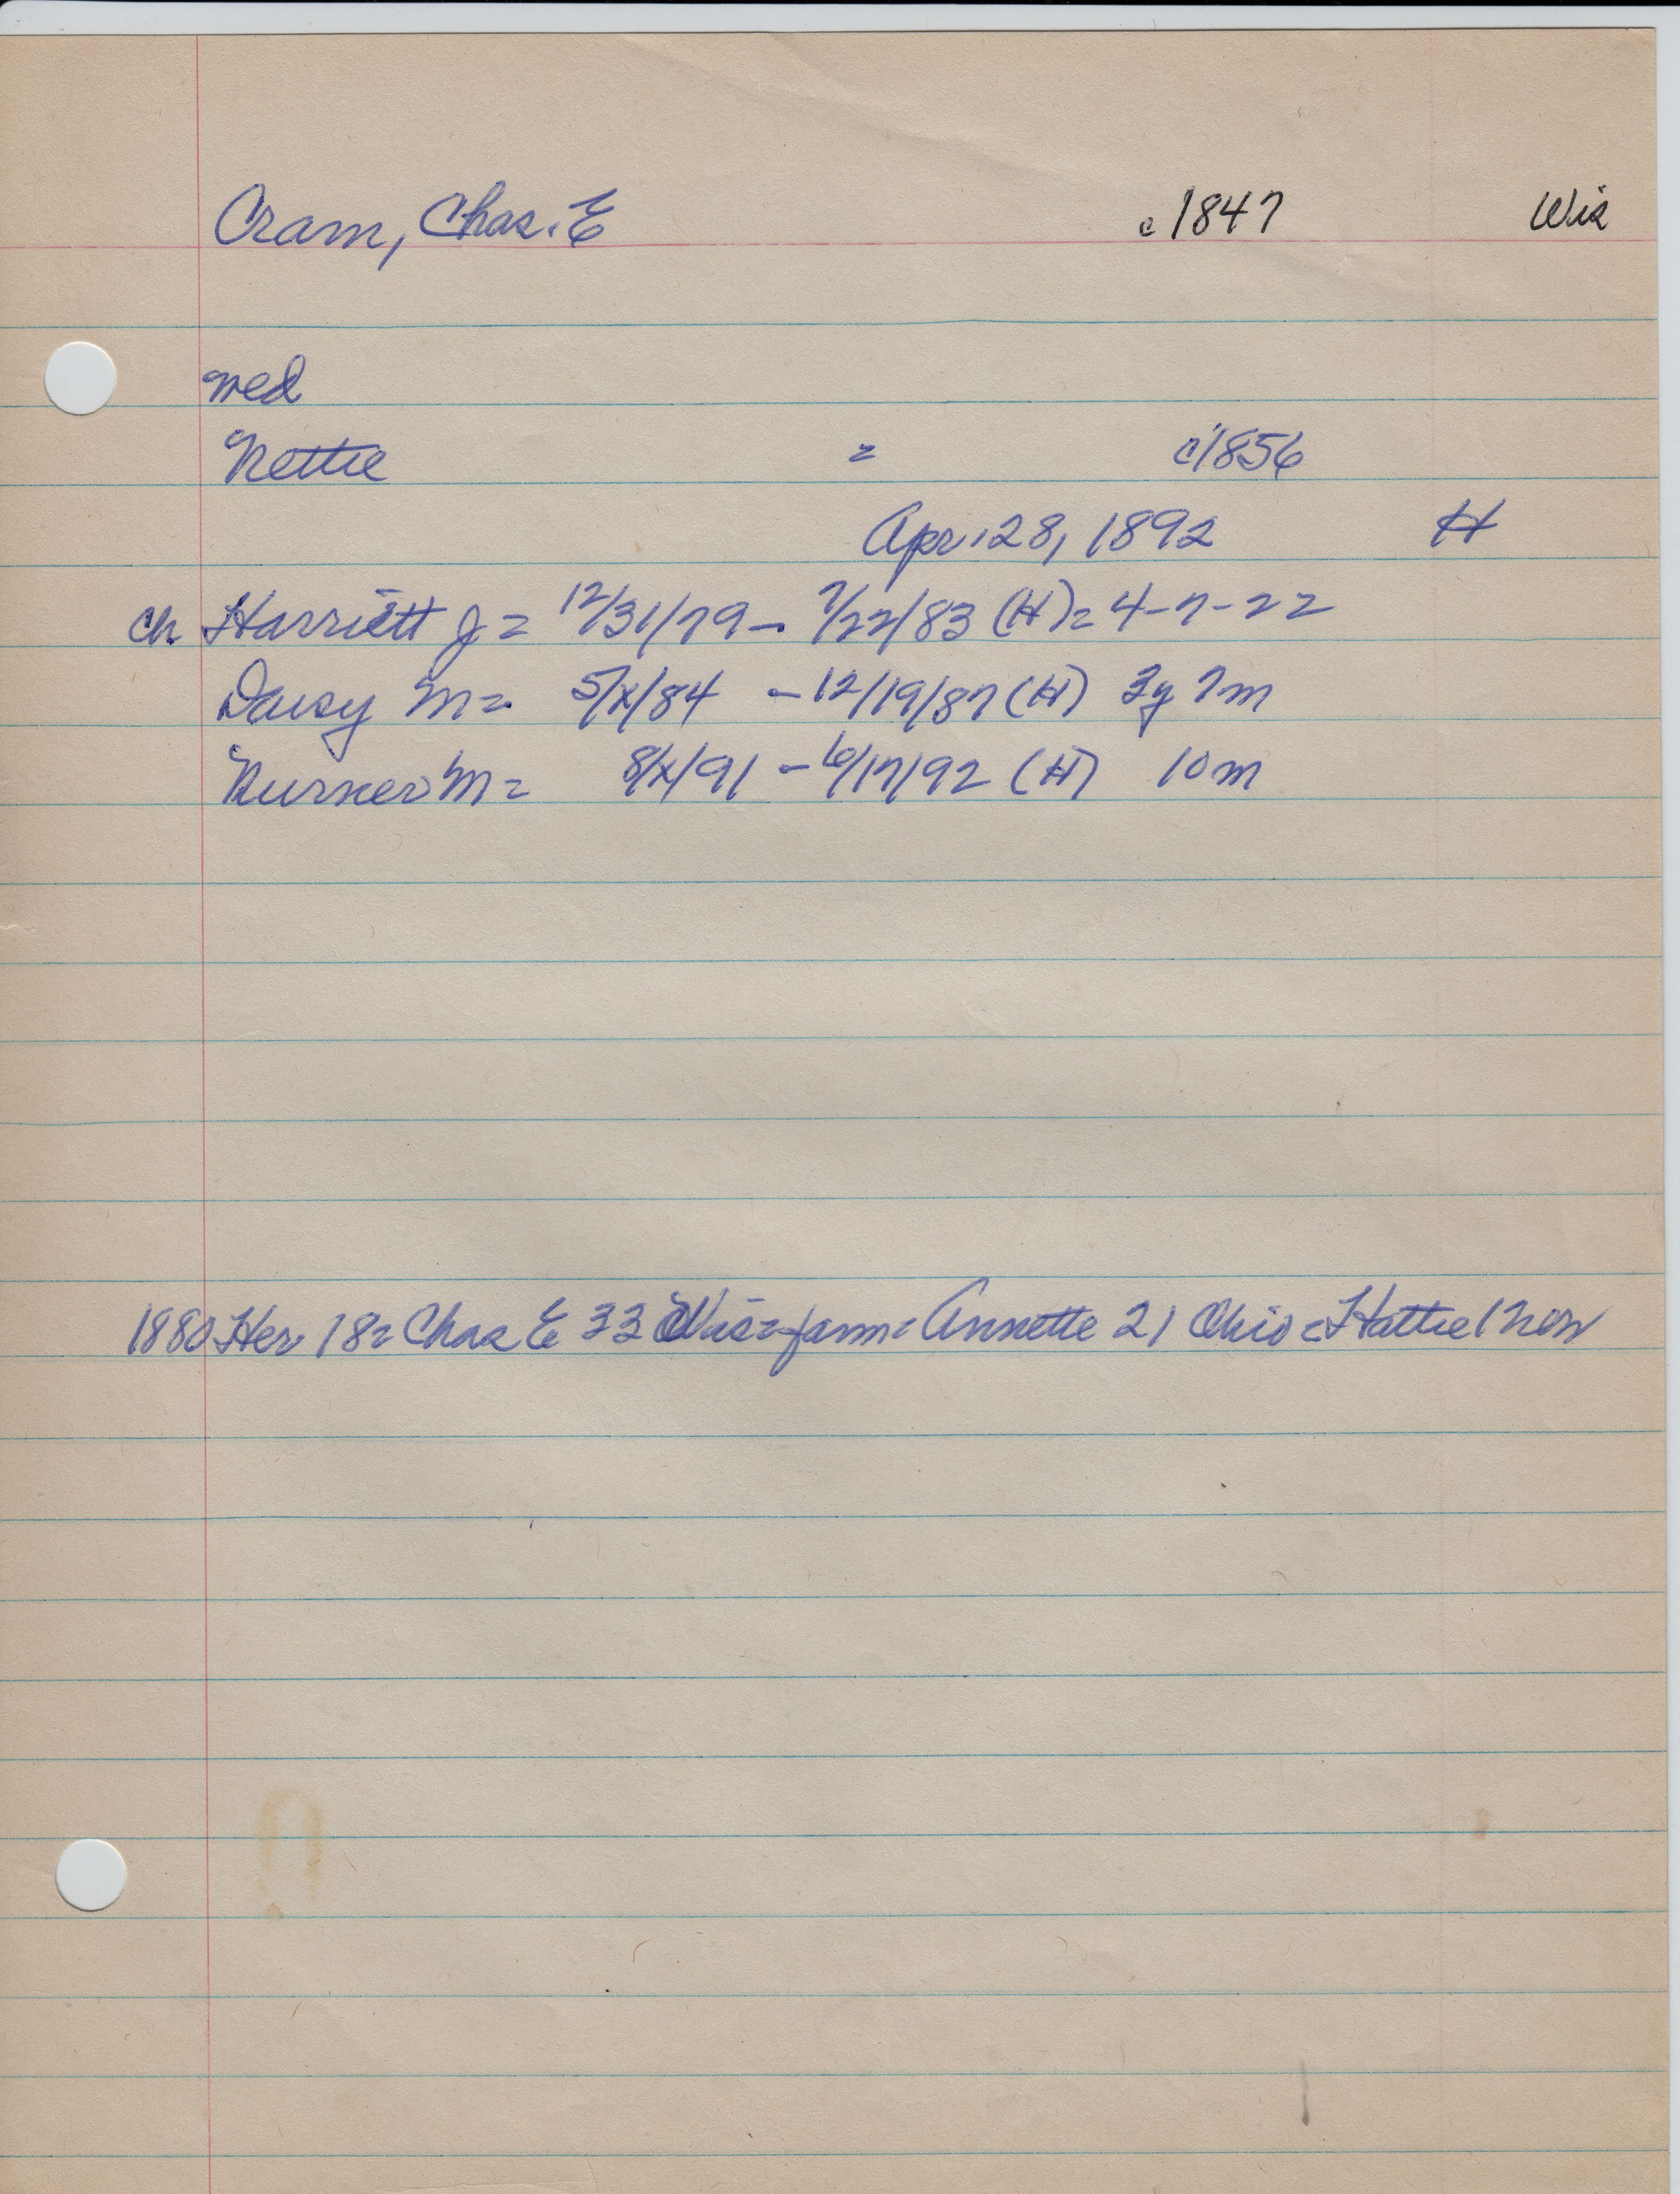 Cram, Chas. E c1847 Wis
wed
Nettie = c1856
Apr. 28, 1892 H
ch Harriett J = 12/31/79 - 7/22/83 (H) = 4-7-22
Daisy M = 5/x/84 - 12/19/87 (H) 3y 7m
M = 8/x/91 - 6/17/92 (H) 10m
1880 Her 182 Chas E 33 Wis = farm = Annette 21 Ohio = Hattie